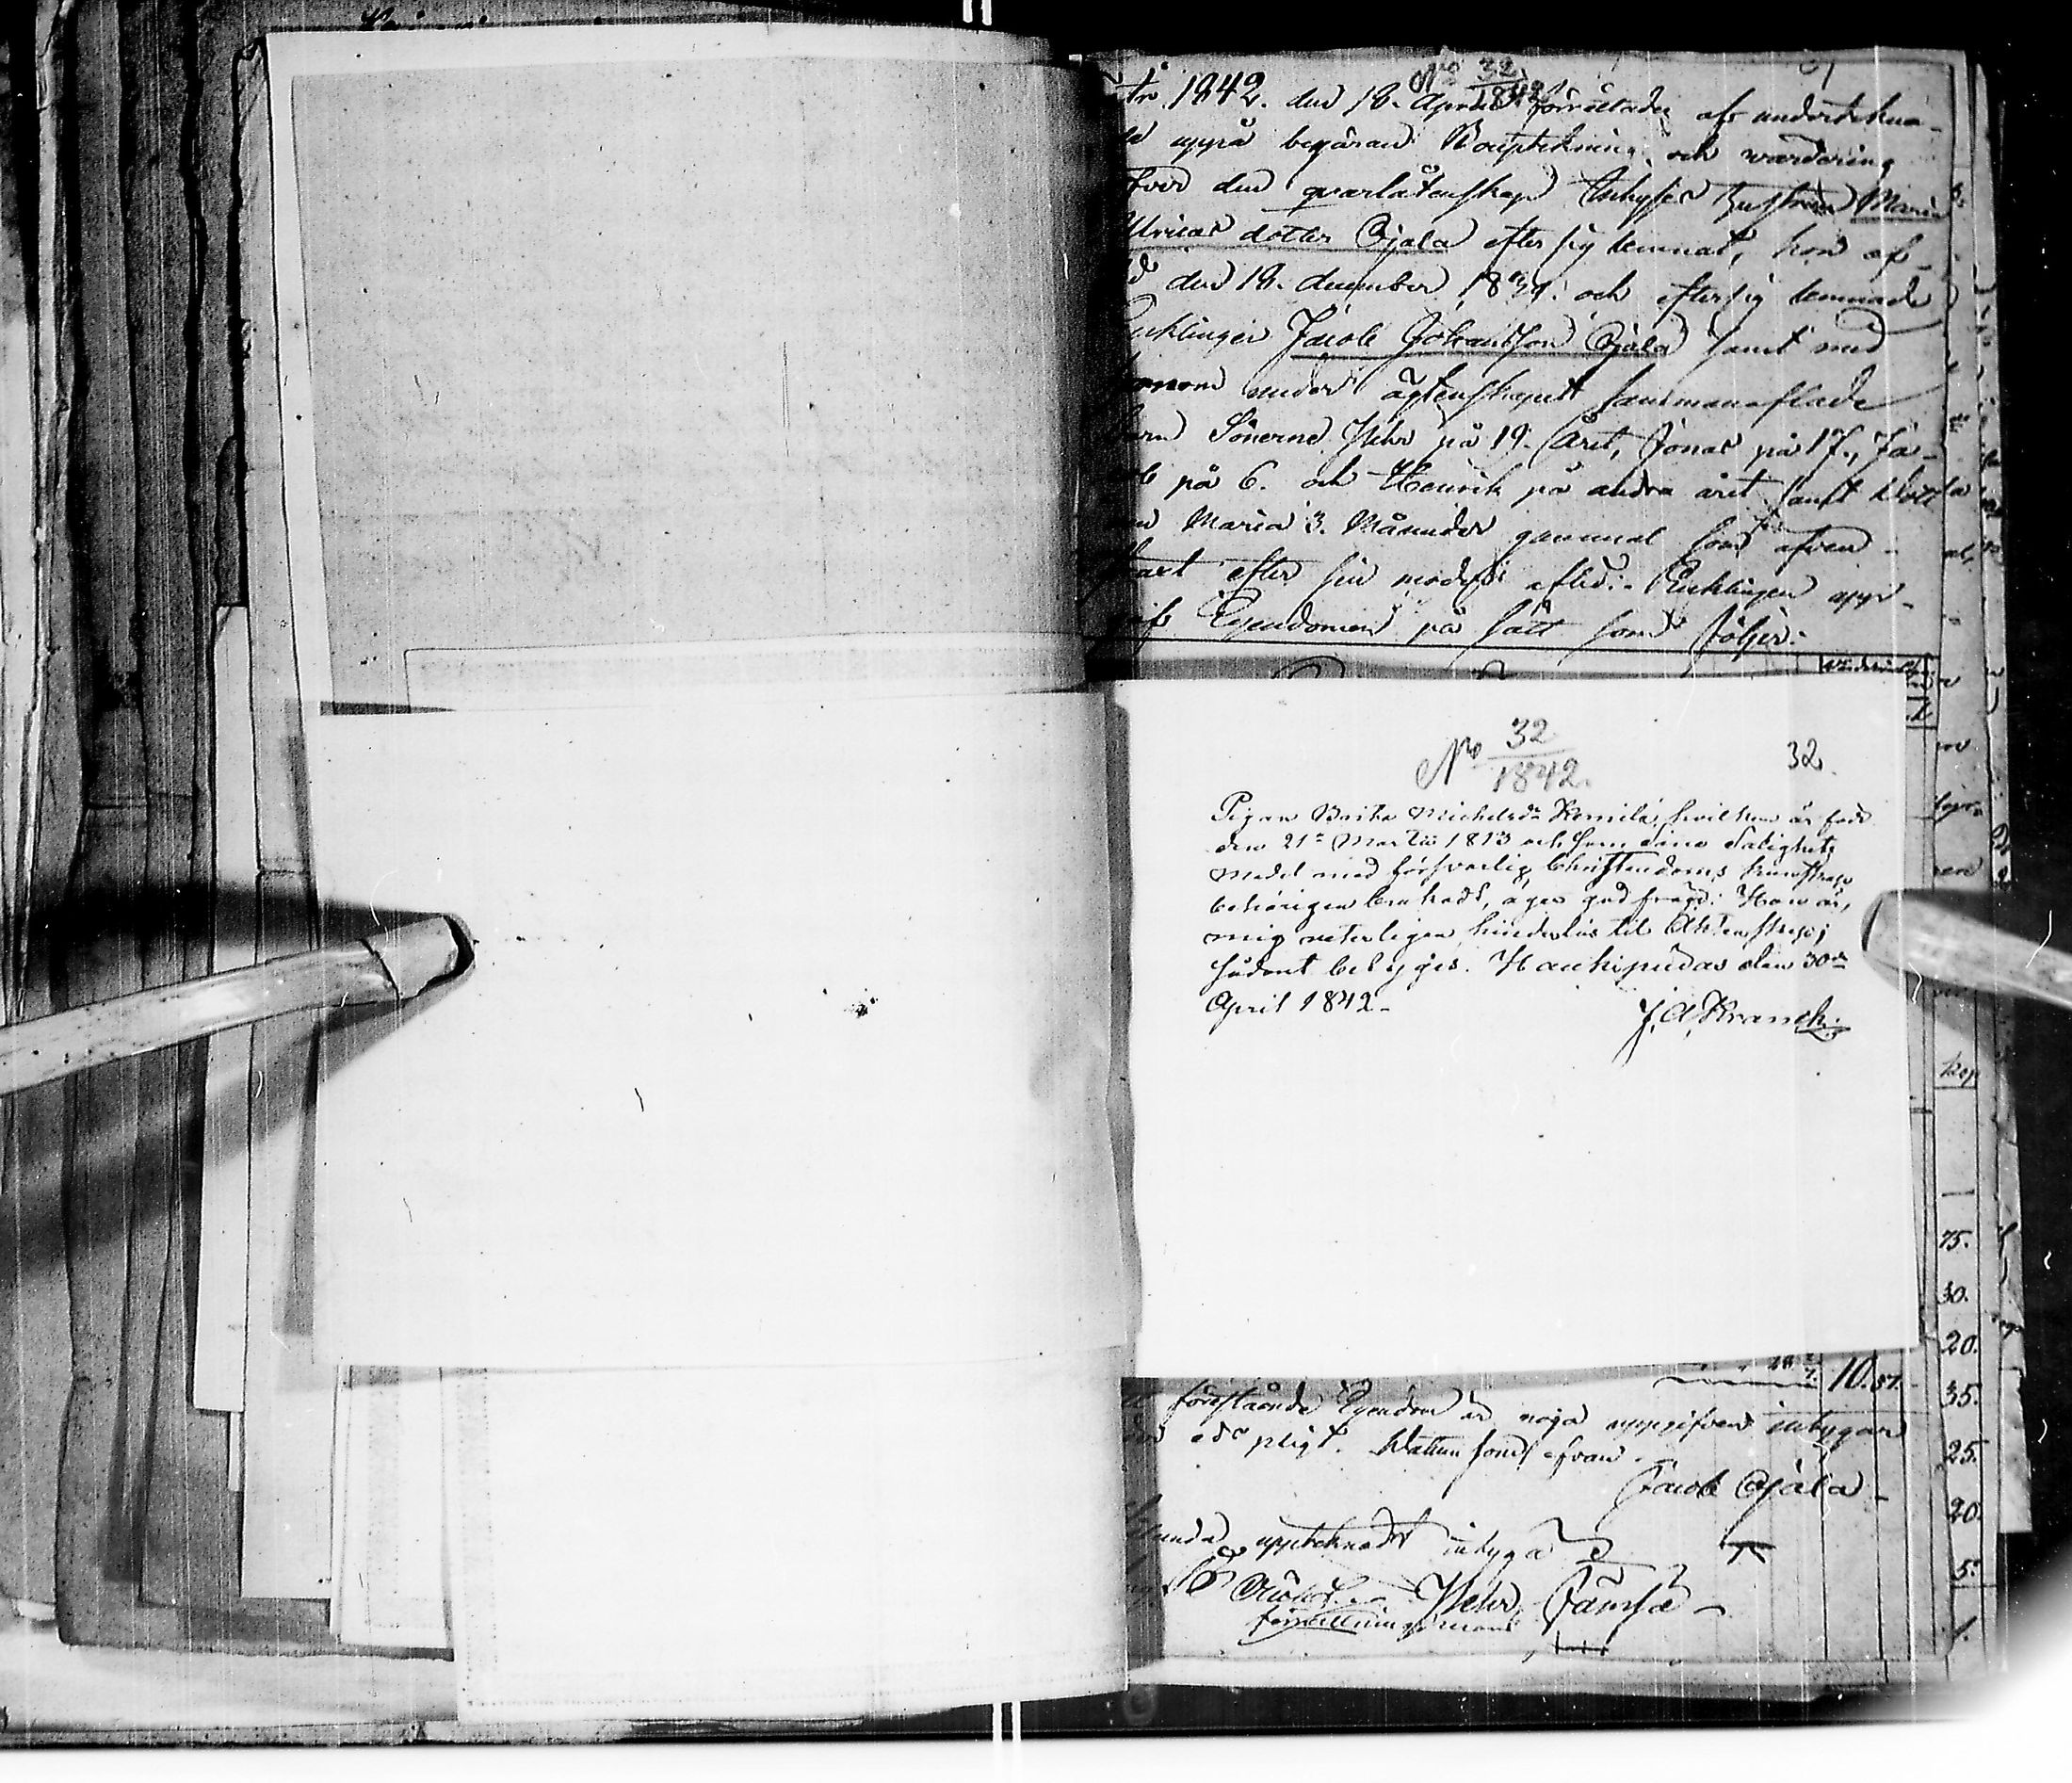 No 32/1842
År 1842. den 18. April förrättades af undertekna-
de uppå begäran Bouptekning och wärdering
öfver den qvarlåtenskap Inhyses hustrun Maria
Ulricas dotter Ojala efter sig lemnat, hon af-
led den 18. december 1839. och efter sig lemnade
Encklingen Jacob Johansson Ojala samt med
honom under ägtenskapet sammanaflade
barn Sönerne Pehr på 19. Året, Jonas på 17., Ja-
cob på 6. och Henrik på andra året samt dott
ren Maria 3. Månader gammal som äfven
straxt efter sin moder afled. Encklingen upp-
gifs Egendomen på sätt som följer:
No 32/1842.
32.
Pigan Brita Michelsdr Remilä, hvilken är född
den 21a Martii 1813 och som sine Salighets
medel med försvarlig Christendoms kunskap
behörigen brukadt, äger god frägd: Hon är,
mig veterligen, hinderlös til Äktenskap;
sådant betygas. Haukipudas den 30de
April 1842.
J. A. Kranck.
10. 57.
förestående Egendom är noga uppgifven intygar
under eds pligt. Datum som ofvan.
Jacob Ojala
upptecknadt intyga
Pehr Jämsä
förrättningsmans
kop
75.
30.
20.
35.
25.
20.
5.
1.